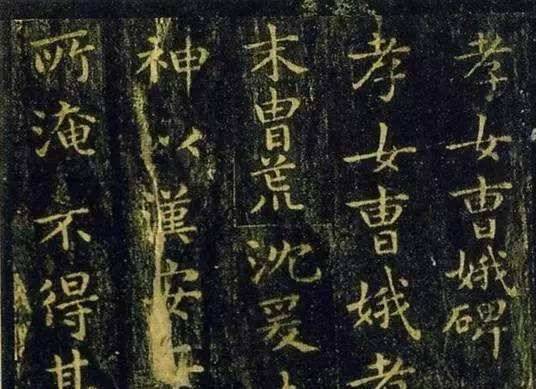 孝女曹娥碑
孝女曹娥者
末胄荒沈爰
神以漢安
所淹不得其